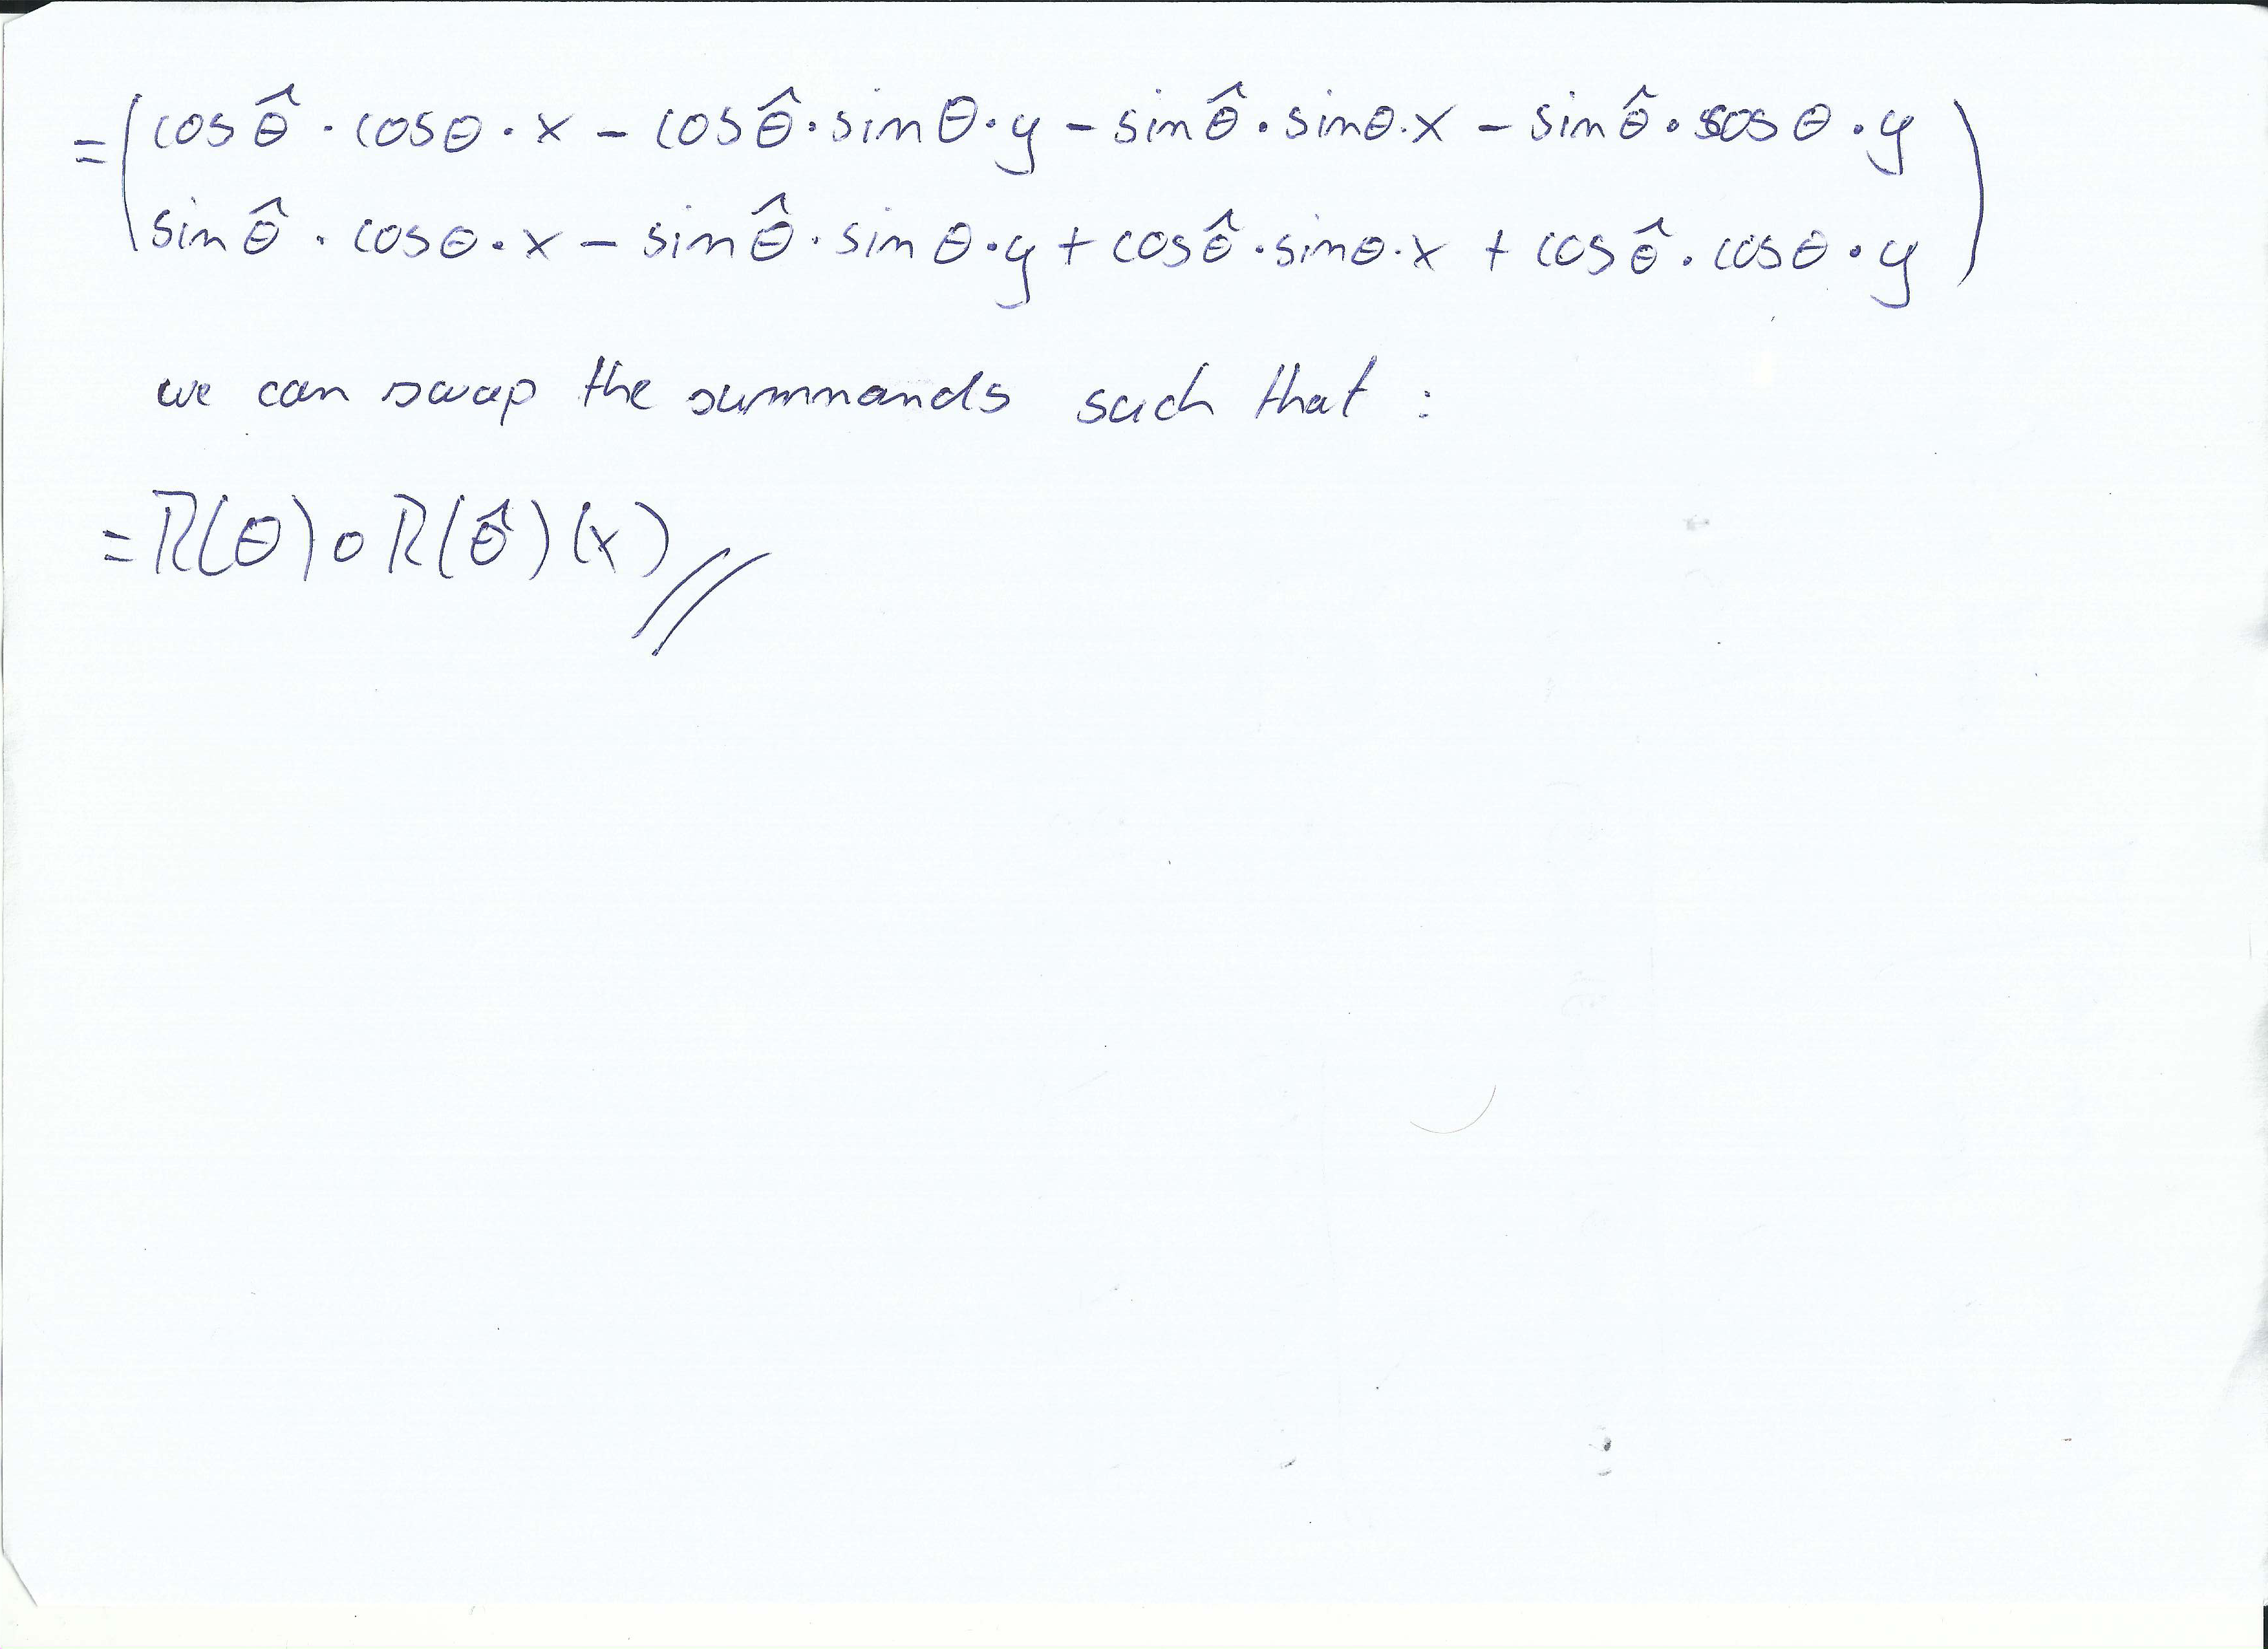 = ( cos θ̂ · cos θ · x − cos θ̂ · sin θ · y − sin θ̂ · sin θ · x − sin θ̂ · cos θ · y
sin θ̂ · cos θ · x − sin θ̂ · sin θ · y + cos θ̂ · sin θ · x + cos θ̂ · cos θ · y )
we can swap the summands such that :
= R(θ) ∘ R(θ̂) (x) //